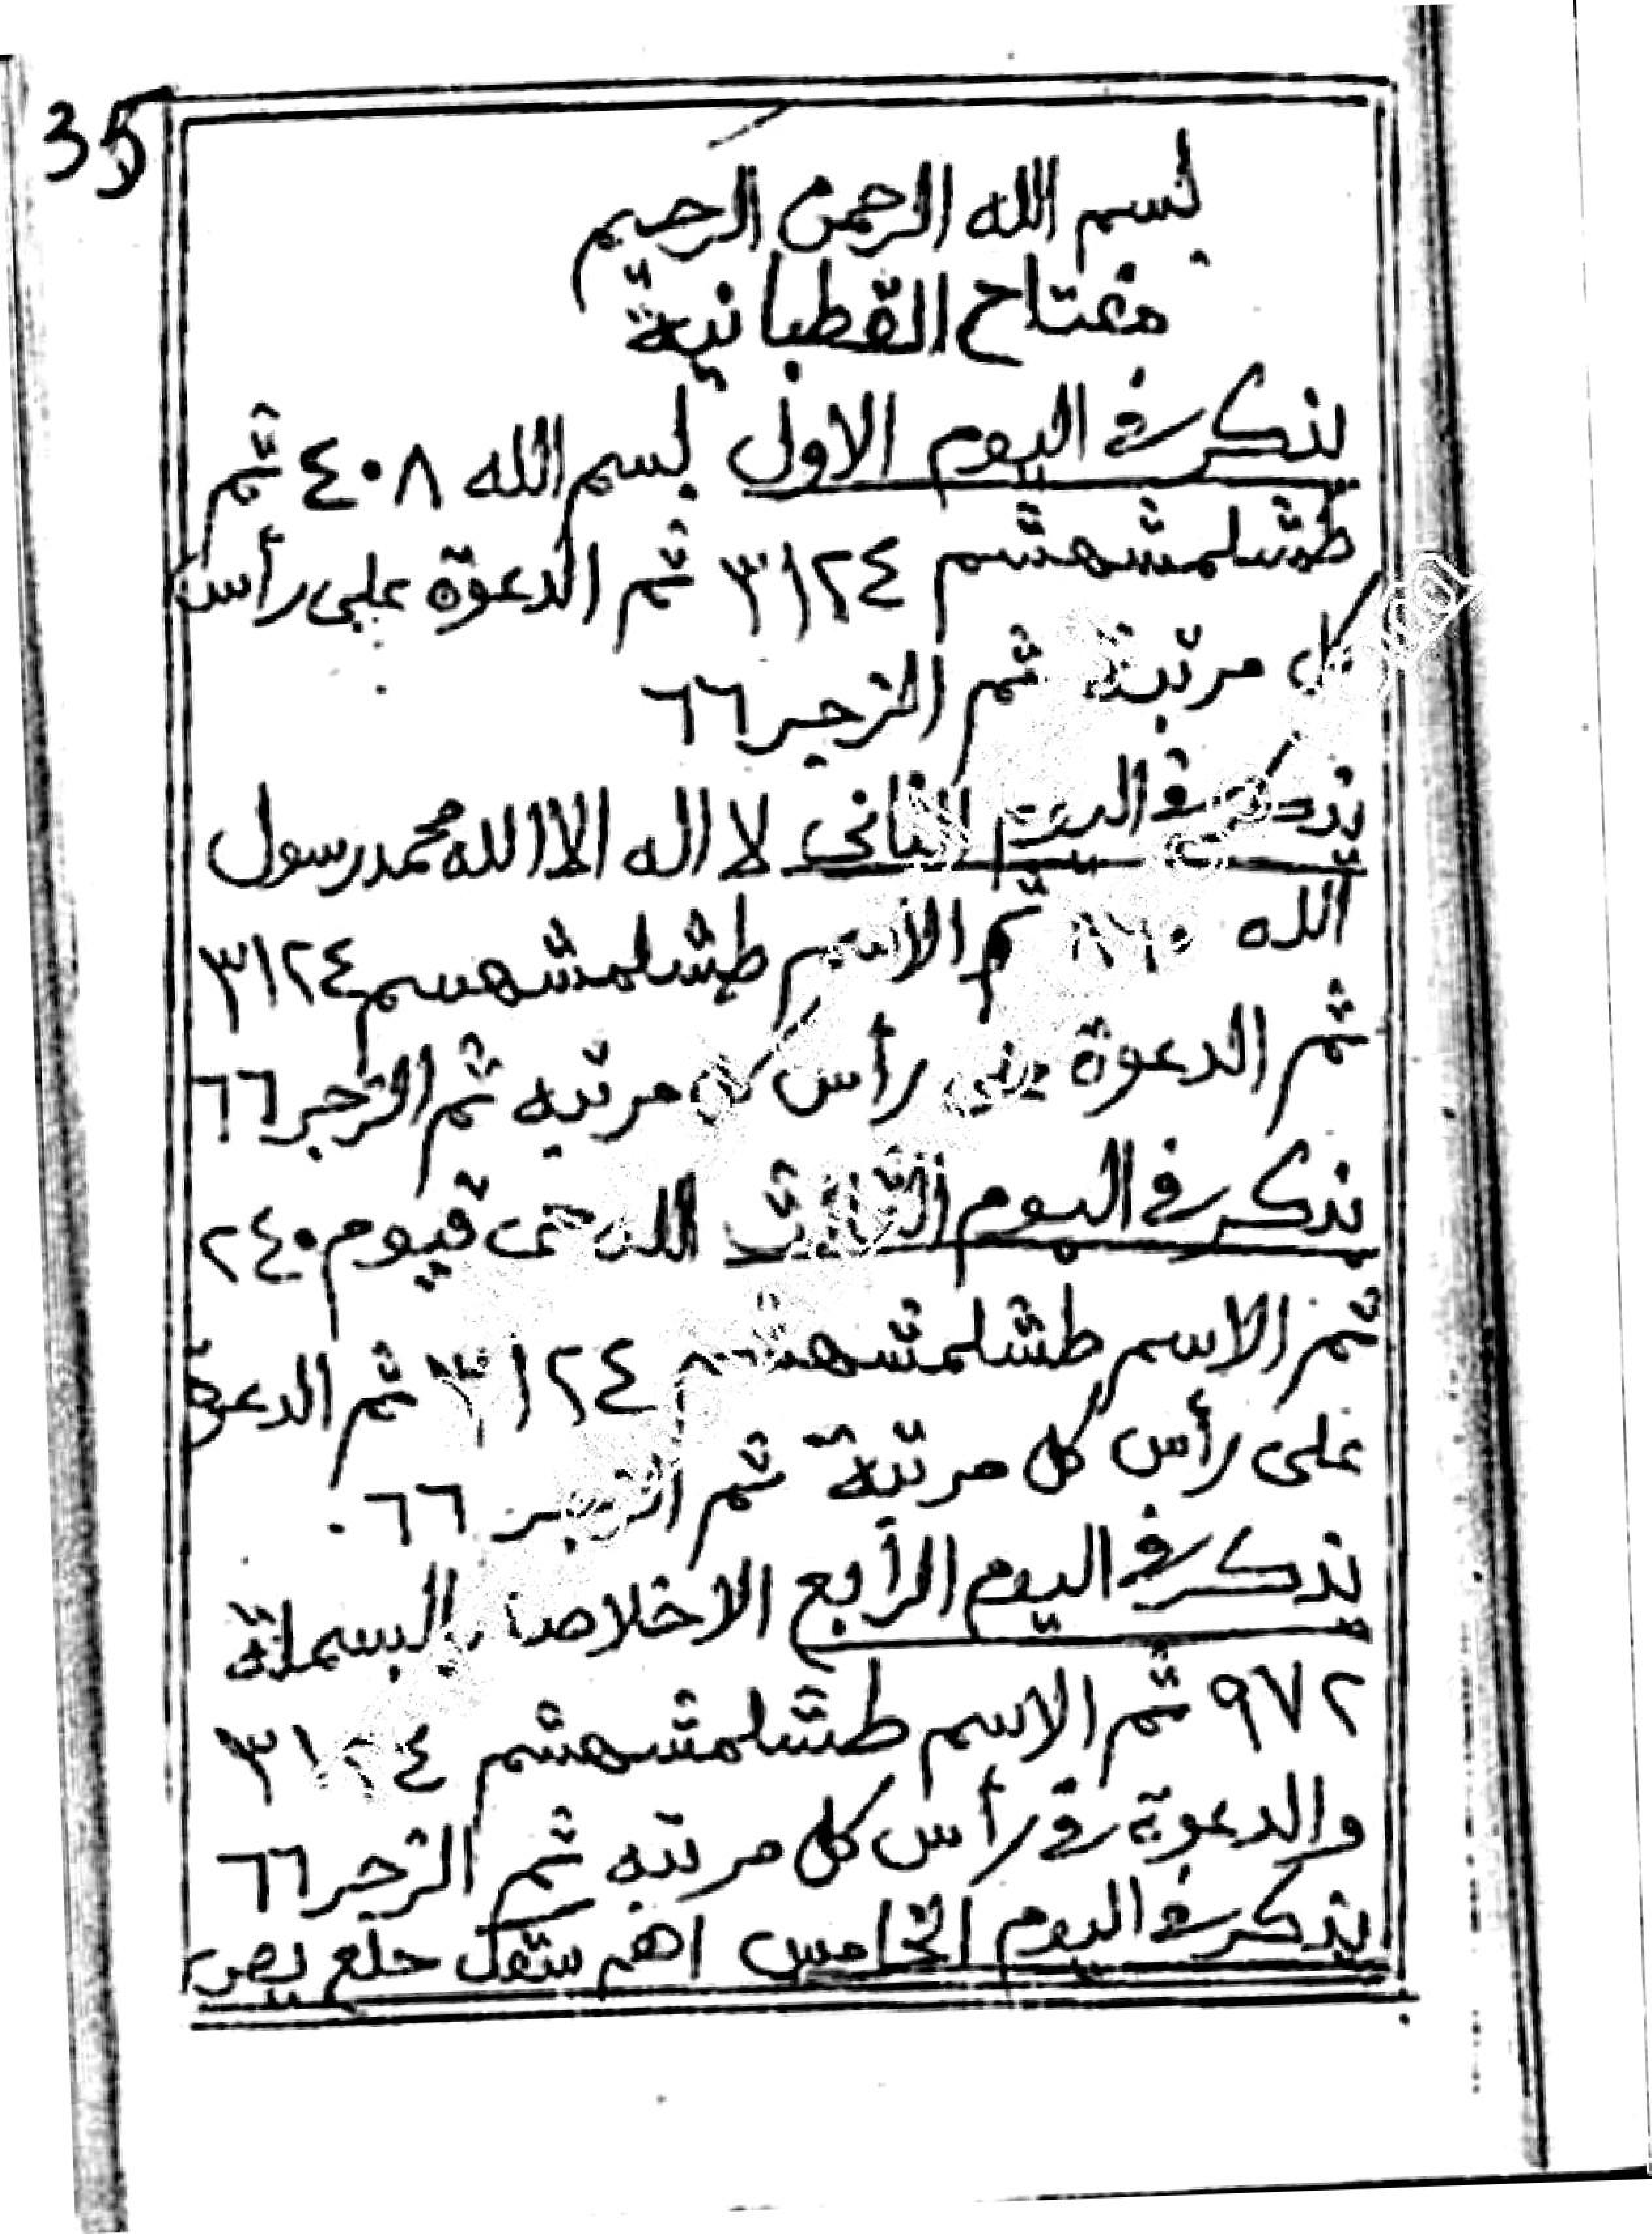 35
بسم الله الرحمن الرحيم
مفتاح القطبانية
يذكر في اليوم الاول بسم الله ٤٠٨ ثم
طشلمشهشم ٣١٢٤ ثم الدعوة على رأس
كل مرتبة ثم الزجر ٦٦
يذكر في اليوم الثاني لا اله الا الله محمد رسول
الله ثم الاسم طشلمشهسم ٣١٢٤
ثم الدعوة رأس كل مرتبه ثم الزجر ٦٦
يذكر في اليوم الثالث الله حى قيوم ٢٤٠
ثم الاسم طشلمشهشم ٣١٢٤ ثم الدعوة
على رأس كل مرتبة ثم الزجر ٦٦.
يذكر في اليوم الرابع الاخلاص بالبسملة
٩٧٢ ثم الاسم طشلمشهشم ٣١٢٤
والدعوة في رأس كل مرتبه ثم الزجر ٦٦
يذكر في اليوم الخامس اهم سقك حلع يص